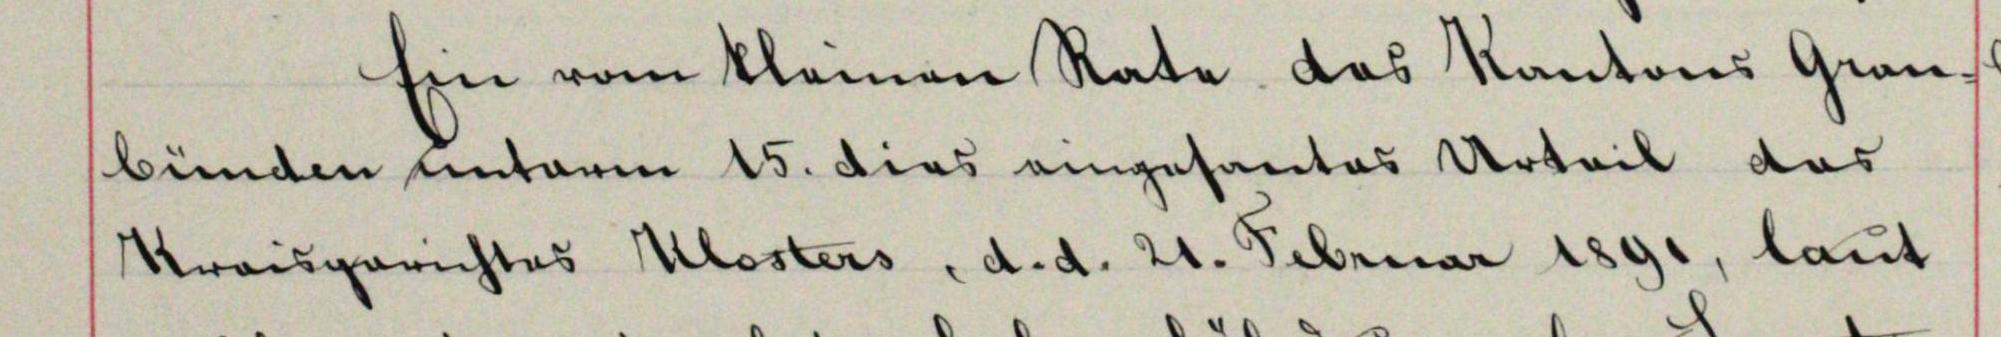 Ein vom kleinen Rate des Kantons Grau=
bünden unterm 15. dies eingesantes Urteil des
Kreisgerichtes Klosters, d. d. 21. Februar 1891, laut